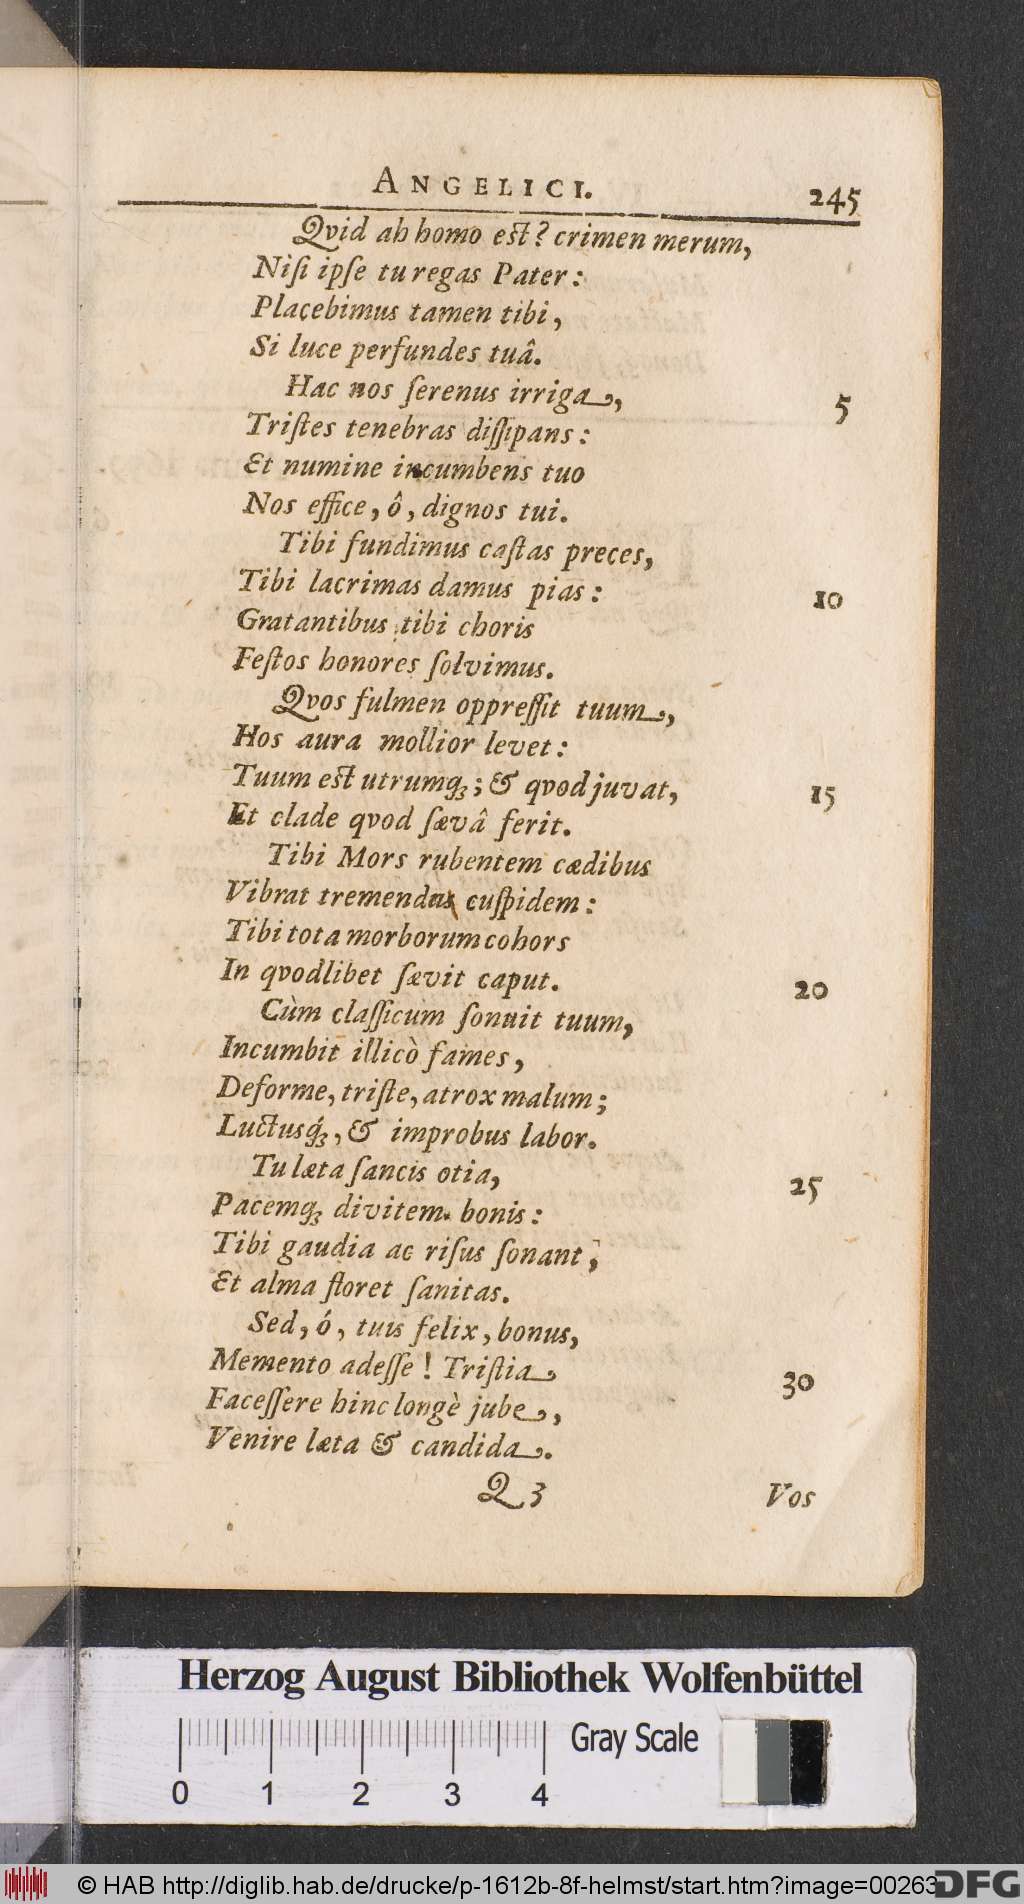 ANGELICI. 245
Qvid ah homo est? crimen merum,
Niſi ipſe tu regas Pater:
Placebimus tamen tibi,
Si luce perfundes tuâ.
Hac nos ſerenus irriga, 5
Triſtes tenebras diſſipans:
Et numine incumbens tuo
Nos effice, ô, dignos tui.
Tibi fundimus caſtas preces,
Tibi lacrimas damus pias: 10
Gratantibus tibi choris
Feſtos honores ſolvimus.
Qvos fulmen oppreſſit tuum,
Hos aura mollior levet:
Tuum est utrumqꝫ; & qvod juvat, 15
Et clade qvod ſævâ ferit.
Tibi Mors rubentem cædibus
Vibrat tremendus cuſpidem:
Tibi tota morborum cohors
In qvodlibet ſævit caput. 20
Cùm claſſicum ſonuit tuum,
Incumbit illicò fames,
Deforme, triſte, atrox malum;
Luctusq́ꝫ, & improbus labor.
Tu læta ſancis otia, 25
Pacemqꝫ divitem bonis:
Tibi gaudia ac riſus ſonant,
Et alma floret ſanitas.
Sed, ó, tuis felix, bonus,
Memento adeſſe! Triſtia 30
Faceſſere hinc longè jube,
Venire læta & candida.
Q 3 Vos
Herzog August Bibliothek Wolfenbüttel
Gray Scale
0 1 2 3 4
© HAB http://diglib.hab.de/drucke/p-1612b-8f-helmst/start.htm?image=00263
DFG